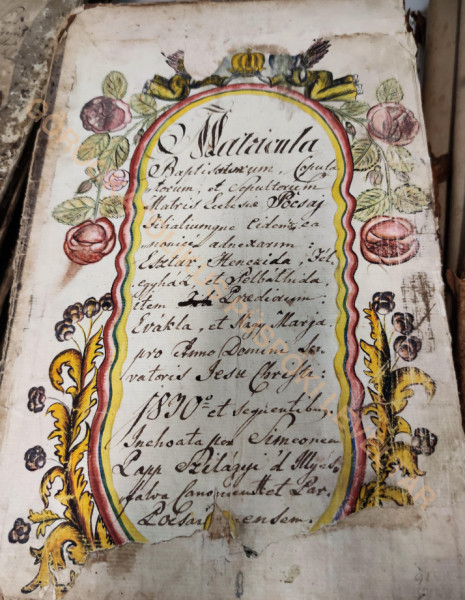 Matricula
Baptisatorum, Copula
torum, et Sepultorum
Matris Ecclesiae Pocsaj
Filialiumque eidem ca
nonice adnexarum:
Esztár, Henczida, Fel
egyház, et Pelbárthida
item Praediorum:
Evákla, et Nagy Marja.
pro Anno Domini Ser
vatoris Jesu Christi:
1830º et sequentibus.
Inchoata per Simeonem
Papp Szilágyi d' Illyés
falva Canonicum et Par.
Pocsaj ensem.